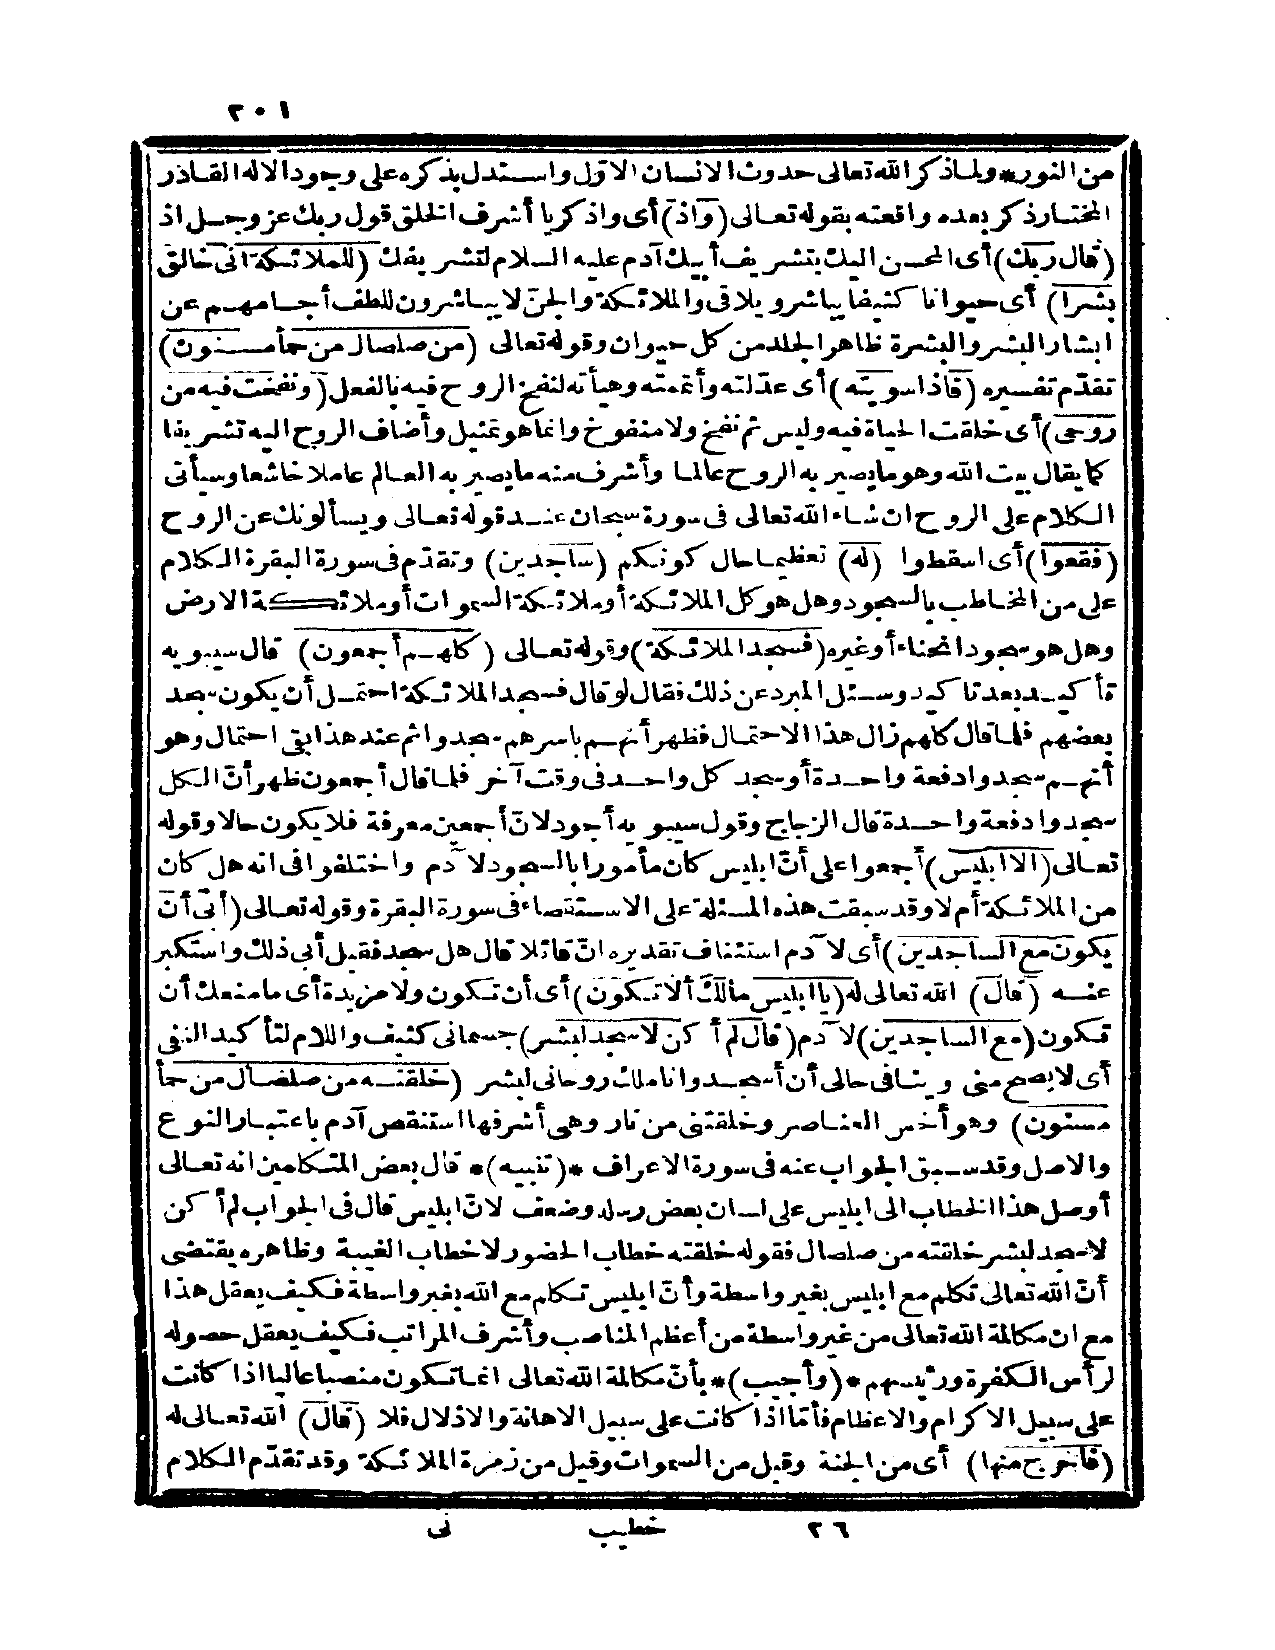 ٢٠١
من النور * ولما ذكر الله تعالى حدوث الانسان الاوّل واستدل بذكره على وجود الاله القادر
المختار ذكر بعده واقعته بقوله تعالى (واذ) أى واذكر يا أشرف الخلق قول ربك عز وجل اذ
(قال ربك) أى المحسن اليك بتشريف أبيك آدم عليه السلام لتشريفك (للملائكة انى خالق
بشرا) أى حيوانا كثيفا يباشر ويلاقى والملائكة والجنّ لا يباشرون للطف أجسامهم عن
ابشار البشر والبشرة ظاهر الجلد من كل حيوان وقوله تعالى (من صلصال من حأ مسنون)
تقدّم تفسيره (فاذا سويته) أى عدّلته وأتممته وهيأته لنفخ الروح فيه بالفعل (ونفخت فيه من
روحى) أى خلقت الحياة فيه وليس ثم نفخ ولا منفوخ وانما هو تمثيل وأضاف الروح اليه تشريفا
كما يقال بيت الله وهو ما يصير به الروح عالما وأشرف منه ما يصير به العالم عاملا خاشعا وسيأتى
الكلام على الروح ان شاء الله تعالى فى سورة سبحان عند قوله تعالى ويسألونك عن الروح
(فقعوا) أى اسقطوا (له) تعظيما حال كونكم (ساجدين) وتقدّم فى سورة البقرة الكلام
على من المخاطب بالسجود وهل هو كل الملائكة أو ملائكة السموات أو ملائكة الارض
وهل هو سجود انحناء أو غيره (فسجد الملائكة) وقوله تعالى (كلهم أجمعون) قال سيبويه
تأكيد بعد تاكيد وسئل المبرد عن ذلك فقال لو قال فسجد الملائكة احتمل أن يكون سجد
بعضهم فلما قال كلهم زال هذا الاحتمال فظهر أنهم باسرهم سجدوا ثم عند هذا بقى احتمال وهو
أنهم سجدوا دفعة واحدة أو سجد كل واحد فى وقت آخر فلما قال أجمعون ظهر أنّ الكل
سجدوا دفعة واحدة قال الزجاج وقول سيبويه أجود لانّ أجمعين معرفة فلا يكون حالا وقوله
تعالى (الا ابليس) أجمعوا على أنّ ابليس كان مأمورا بالسجود لآدم واختلفوا فى انه هل كان
من الملائكة أم لا وقد سبقت هذه المسئلة على الاستقصاء فى سورة البقرة وقوله تعالى (أبى أن
يكون مع الساجدين) أى لآدم استئناف تقديره انّ قائلا قال هل سجد فقيل أبى ذلك واستكبر
عنه (قال) الله تعالى له (يا ابليس مالك ألا تكون) أى أن تكون ولا مزيدة أى ما منعك أن
تكون (مع الساجدين) لآدم (قال لم أكن لاسجد لبشر) جسمانى كثيف واللام لتأكيد النفى
أى لا يصح منى وينافى حالى أن أسجد وانا ملك روحانى لبشر (خلقته من صلصال من حأ
مسنون) وهو أخس العناصر وخلقتنى من نار وهى أشرفها استنقص آدم باعتبار النوع
والاصل وقد سبق الجواب عنه فى سورة الاعراف *(تنبيه)* قال بعض المتكلمين انه تعالى
أوصل هذا الخطاب الى ابليس على لسان بعض رسله وضعف لانّ ابليس قال فى الجواب لم أكن
لاسجد لبشر خلقته من صلصال فقوله خلقته خطاب الحضور لا خطاب الغيبة وظاهره يقتضى
أنّ الله تعالى تكلم مع ابليس بغير واسطة وأنّ ابليس تكلم مع الله بغير واسطة فكيف يعقل هذا
مع ان مكالمة الله تعالى من غير واسطة من أعظم المناصب وأشرف المراتب فكيف يعقل حصوله
لرأس الكفرة ورئيسهم *(وأجيب)* بأنّ مكالمة الله تعالى انما تكون منصبا عاليا اذا كانت
على سبيل الاكرام والاعظام فأمّا اذا كانت على سبيل الاهانة والاذلال فلا (قال) الله تعالى له
(فاخرج منها) أى من الجنة وقيل من السموات وقيل من زمرة الملائكة وقد تقدّم الكلام
٢٦ خطيب نى